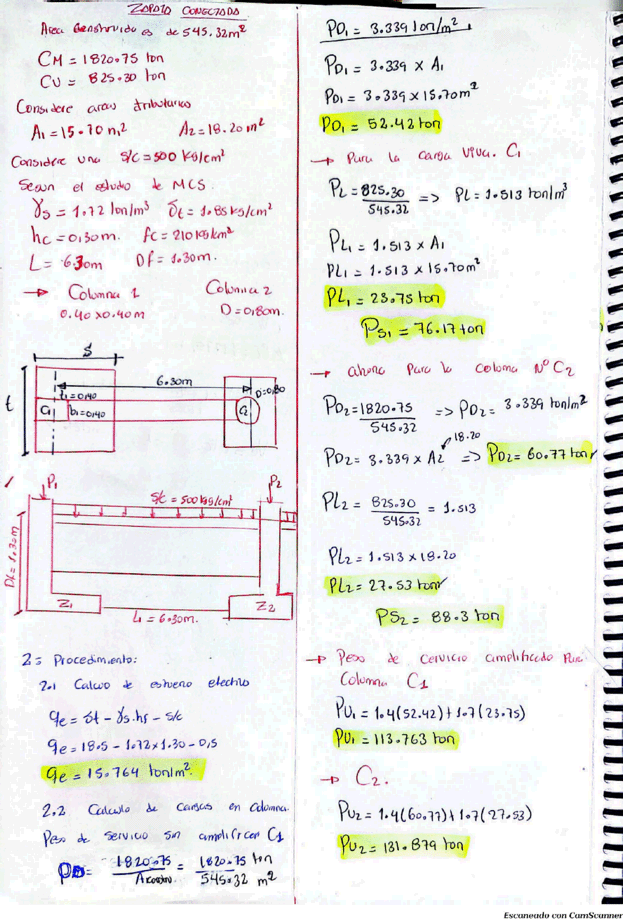 ZAPATA CONECTADA
Area Construida es de 545.32m²
CM = 1820.75 ton
CV = 825.30 ton
Considere areas tributarias
A₁ = 15.70 m2 A₂ = 18.20 m²
Considere una s/c = 500 kg/cm²
Segun el estudio de MCS.
γs = 1.72 ton/m³ δt = 1.85 kg/cm²
hc = 0.30m. fc = 210 kg/cm²
L = 6.30m Df = 1.30m.
→ Columna 1 Columna 2
0.40 x 0.40m D = 0.80m.
S
6.30m
t t₁ = 0.40 D = 0.80
C₁ b₁ = 0.40 C₂
P₁ P₂
s/c = 500 kg/cm²
Df = 1.30m
Z₁ Z₂
L₁ = 6.30m.
2= Procedimiento:
2.1 Calculo de esfuerzo
qe = δt - γs.hf - s/c
qe = 18.5 - 1.72 x 1.30 - 0,5
qe = 15.764 ton/m².
2.2 Calculo de cargas en columna.
Peso de servicio sin amplificar C1
PD = 1820.75 = 1820.75 ton
545.32 m²
PD₁ = 3.339 ton/m²
PD₁ = 3.339 x A₁
PD₁ = 3.339 x 15.70m²
PD₁ = 52.42 ton
→ Para la carga viva. C₁
PL = 825.30 => PL = 1.513 ton/m³
545.32
PL₁ = 1.513 x A₁
PL₁ = 1.513 x 15.70m²
PL₁ = 23.75 ton
PS₁ = 76.17 ton
→ ahora Para la coloma N° C₂
PD₂ = 1820.75 => PD₂ = 3.339 ton/m²
545.32
18.20
PD₂ = 3.339 x A2 => PD₂ = 60.77 ton
PL₂ = 825.30 = 1.513
545.32
PL₂ = 1.513 x 18.20
PL₂ = 27.53 ton
PS₂ = 88.3 ton
→ Peso de servicio amplificado Para
Columna C1
PU₁ = 1.4(52.42) + 1.7(23.75)
PU₁ = 113.763 ton
→ C₂.
PU₂ = 1.4(60.77) + 1.7(27.53)
PU₂ = 131.879 ton
Escaneado con CamScanner